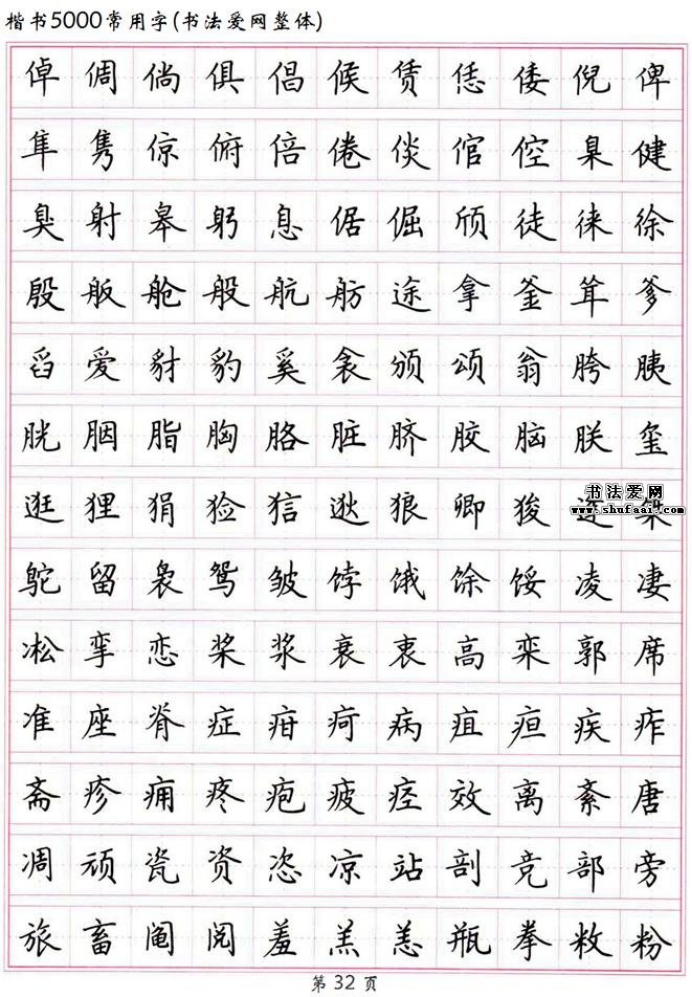 楷书5000常用字(书法爱网整体)
倬倜倘俱倡候赁恁倭倪俾
隼隽倞俯倍倦倓倌倥臬健
臭射皋躬息倨倔颀徒徕徐
殷舨舱般航舫途拿釜耸爹
舀爱豺豹奚衾颁颂翁胯胰
胱胭脂胸胳脏脐胶脑朕玺
逛狸狷猃狺逖狼卿狻
书法爱网
www.shufaai.com
鸵留袅鸳皱饽饿馀馁凌凄
凇挛恋桨浆衰衷高栾郭席
准座脊症疳疴病疽疸疾痄
斋疹痈疼疱疲痉效离紊唐
凋顽瓷资恣凉站剖竞部旁
旅畜阄阅羞羔恙瓶拳敉粉
第 32 页